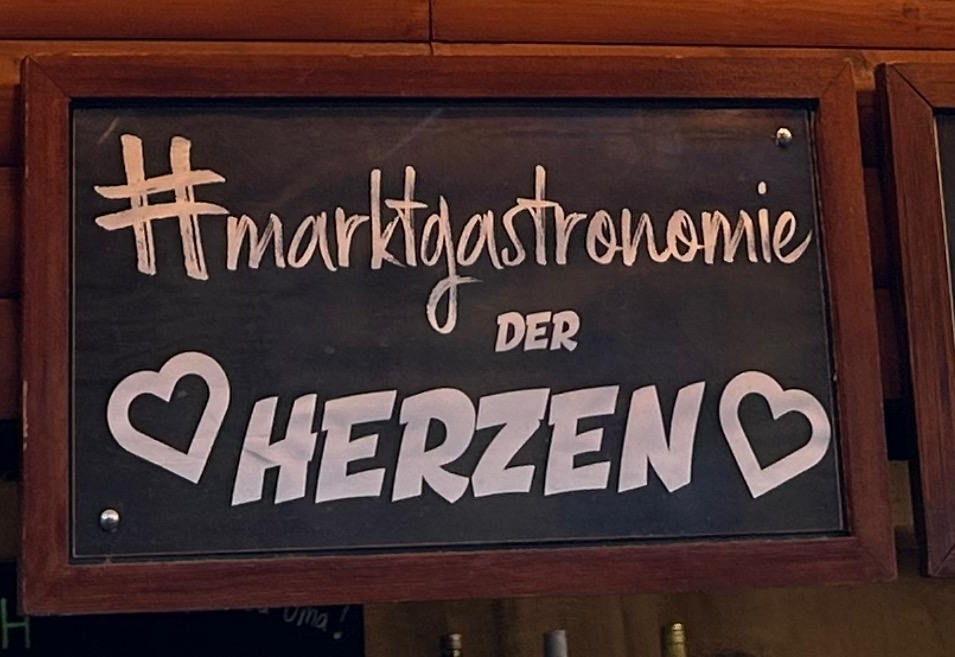 #marktgastronomie
DER
HERZEN
H
Oma!